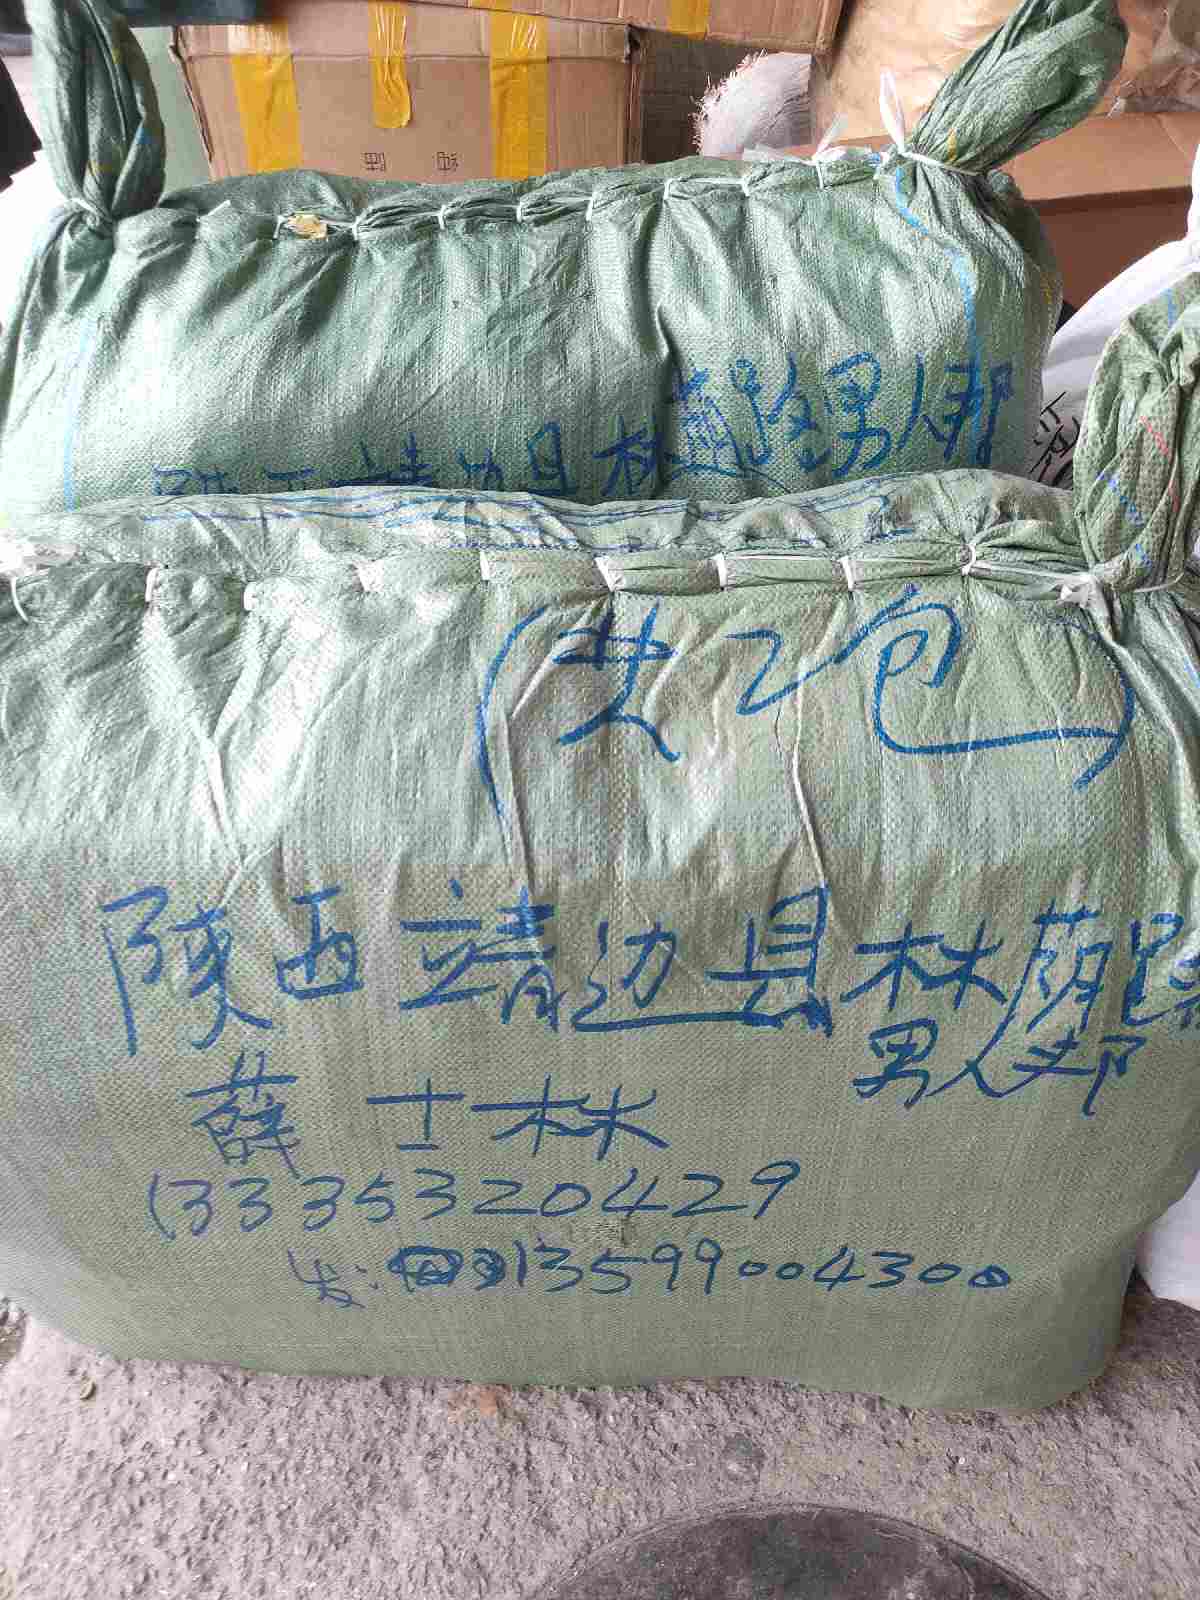 陕西靖边县林荫路男人帮
(共2包)
陕西靖边县林荫路
男人帮
薛士林
13335320429
发:13599004300